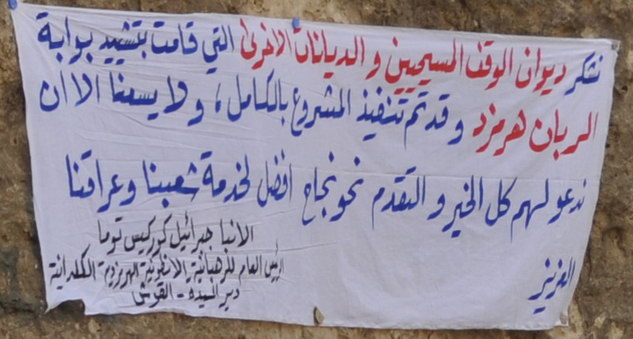 نشكر ديوان الوقف المسيحيين و الديانات الاخرى التي قامت بتشييد بوابة
الربان هرمزد وقد تم تنفيذ المشروع بالكامل، ولا يسعنا الا ان
ندعو لهم كل الخير و التقدم نحو نجاح افضل لخدمة شعبنا وعراقنا
العزيز
الانبا جبرائيل كوركيس توما
الرئيس العام للرهبانية الانطونية الهرمزدية الكلدانية
دير السيدة - القوش